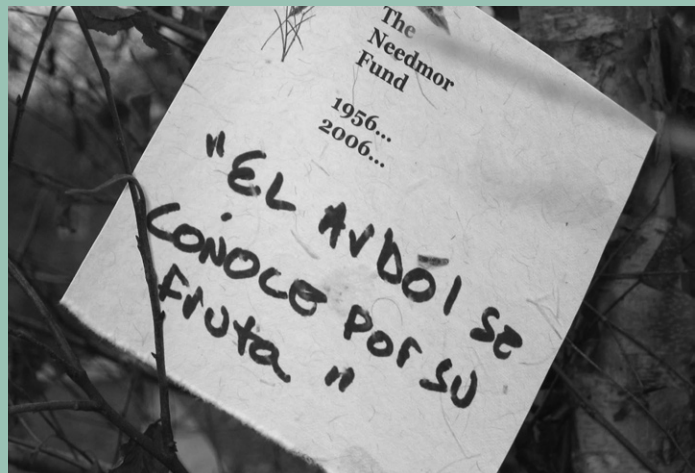 The
Needmor
Fund
1956...
2006...
"EL Arbol se
CONOCE por su
Fruta"